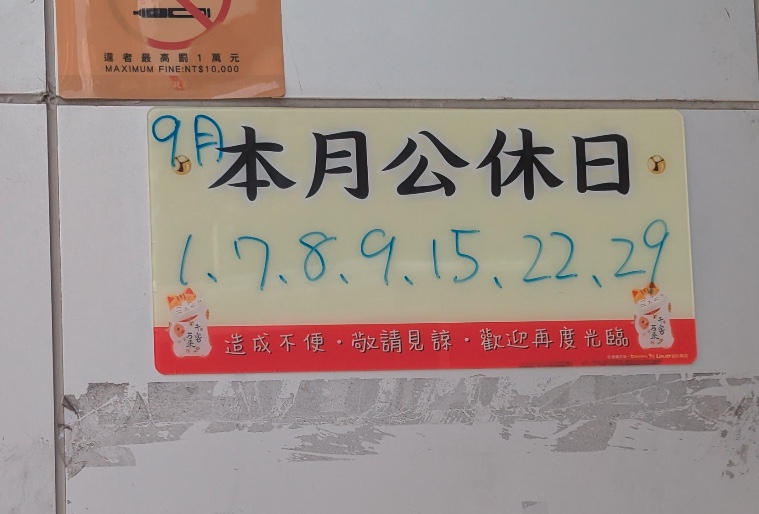 違者最高罰1萬元
MAXIMUM FINE:NT$10,000
9月
本月公休日
1、7、8、9、15、22、29
造成不便・敬請見諒・歡迎再度光臨